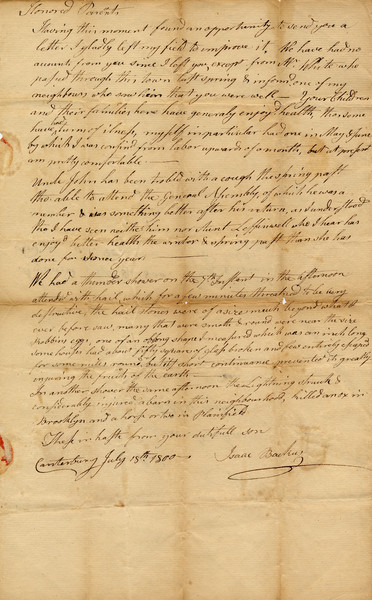 Honored Parents
Having this moment found an opportunity to send you a
letter I gladly left my field to improve it. We have had no
accounts from you since I left you, except from Mr. White who
passed through this town last spring & informed one of my
neighbours who saw him that you were well — Your Children
and their families here have generaly enjoyd health, tho some
have had turns of illness, myself in particular had one in May & June
by which I was confined from labour upwards of a month, but at present
am pretty comfortable —
Uncle John has been trobled with a cough the spring past
tho able to attend the General Assembly of which he was a
member & was something better after his return, as I understood
tho I have seen neither him nor Aunt who I hear has
enjoyd better health the winter & spring past than she has
done for some years —
We had a thunder shower on the 7th Instant in the afternoon
attended with hail which for a few minutes threatned to be very
destructive, the hail stones were of a size much beyond what I
ever before saw, many that were smooth & round were near the size
Robbins eggs, one of an oblong shape I measured which was an inch long
some houses had about fifty squares of glass broken and fear entirely
for some miles round, but its short continuance prevented it greatly
injuring the fruits of the earth —
In another shower the same afternoon the Lightning struck &
considerably injured a barn in this neighbourhood, killed an ox in
Brooklyn and a horse or two in Plainfield
These in haste from your dutifull son
Canterbury July 18th 1800 — Isaac Backus